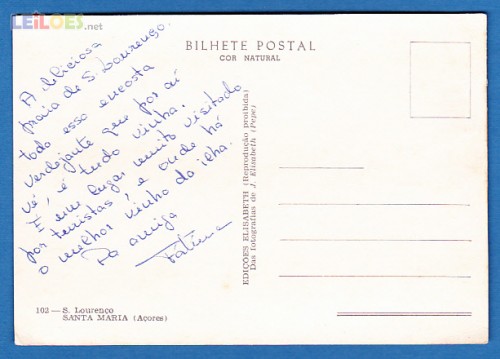 LEILOES.net
BILHETE POSTAL
COR NATURAL
A deliciosa
praia de S. Lourenço.
toda essa encosta
verdejante que por aí
vê, é tudo vinha.
É um lugar muito visitado
por turistas, e onde há
o melhor vinho da ilha.
Da amiga
Fátima
EDIÇÕES ELISABETH (Reprodução proibida)
Das fotografias de J. Elizabeth (Pepe)
102 — S. Lourenco
SANTA MARIA (Açores)